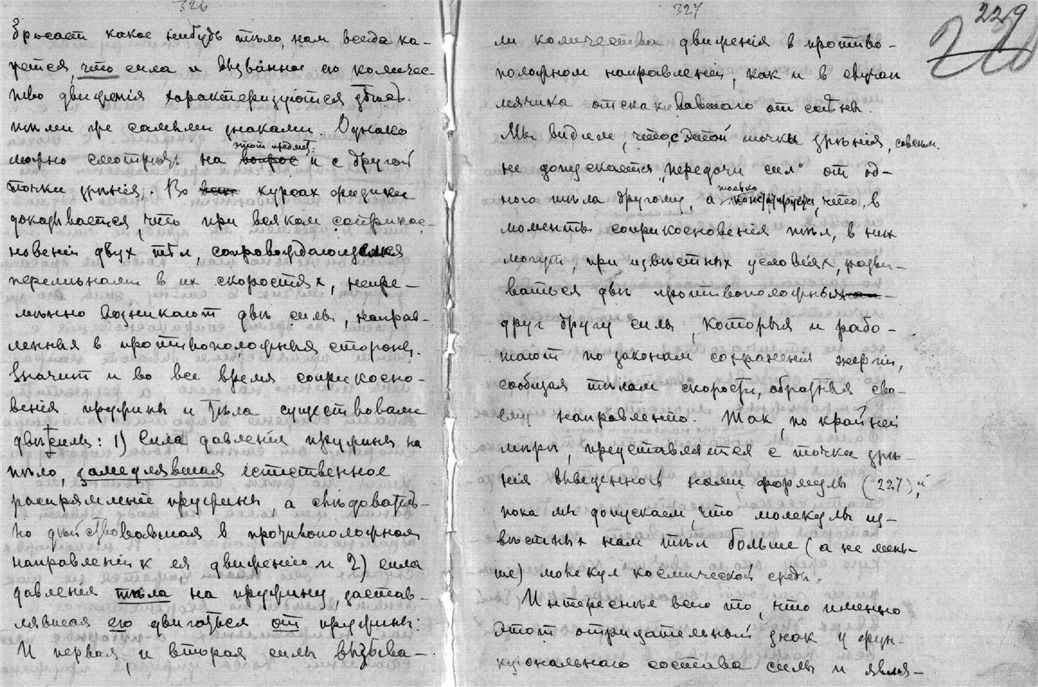 326
бросает какое нибудь тѣло, нам всегда ка-
жется, что сила и вызванное ею количес-
тво движенія характеризуются
тѣми же самыми знаками. Однако
этот предмет
можно смотрѣть на вопрос и с другой
точки зрѣнія. Во всех курсах физики
доказывается, что при всяком соприкос-
новеніи двух тѣл, сопровождающемся
переменами в их скоростях, непре-
мѣнно возникают двѣ силы, направ-
ленныя в противоположныя стороны.
Значит и во все время соприкосно-
венія пружины и тѣла существовали
двѣ силы: 1) Сила давленія пружины на
тѣло, замедлявшая естественное
распрямленіе пружины, а слѣдователь-
но дѣйствовавшая в противоположном
направленіи к ея движенію и 2) сила
давленія тѣла на пружину, застав-
лявшая его двигаться от пружины.
И первая и вторая силы вызыва-
327
229
ли количества движенія в противо-
положном направленіи, как и в случаѣ
мячика отскакивавшаго от стѣны.
Мы видим, что, с этой точки зрѣнія, совсѣм
не допускается „передачи сил" от од-
ного тѣла другому, а только, что, в
моменты соприкосновенія тѣл, в них
могут, при извѣстных условіях, разви-
ваться двѣ противоположныя
друг другу силы, которыя и рабо-
тают по законам сохраненія энергіи,
сообщая тѣлам скорости, обратныя сво-
ему направленію. Так, по крайней
мѣрѣ, представляется с точки зрѣ-
нія выведенной нами формулы (227),
пока мы допускаем, что молекулы из-
вѣстных нам тѣл больше (а не мень-
ше) молекул космической среды.
Интереснѣе всего то, что именно
этот отрицательный знак у функ-
ціональнаго состава силы и явля-